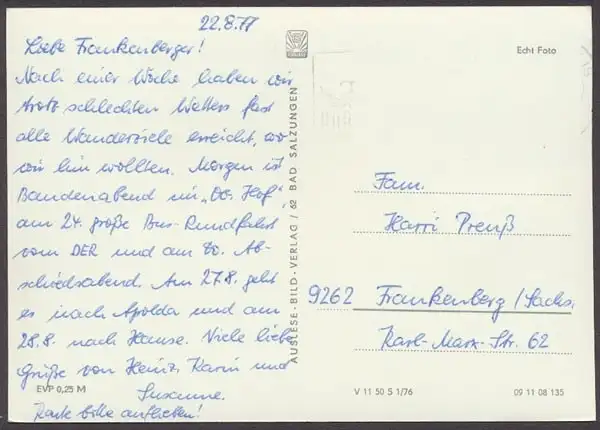 22.8.77
Liebe Frankenberger!
Nach einer Woche haben wir
trotz schlechten Wetters fast
alle Wanderziele erreicht, wo
wir hin wollten. Morgen ist
Bandenabend im „Hof“
am 24. große Bus-Rundfahrt
vom DER und am Ab-
schiedsabend. Am 27.8. geht
es nach Apolda und am
28.8. nach Hause. Viele liebe
Grüße von Heinz, Karin und
Susanne.
Karte bitte aufheben!
EVP 0,25 M
AUSLESE-BILD-VERLAG / 62 BAD SALZUNGEN
Echt Foto
Fam.
Harri Preuß
9262 Frankenberg/Sachs.
Karl-Marx-Str. 62
V 11 50 S 1/76
09 11 08 135